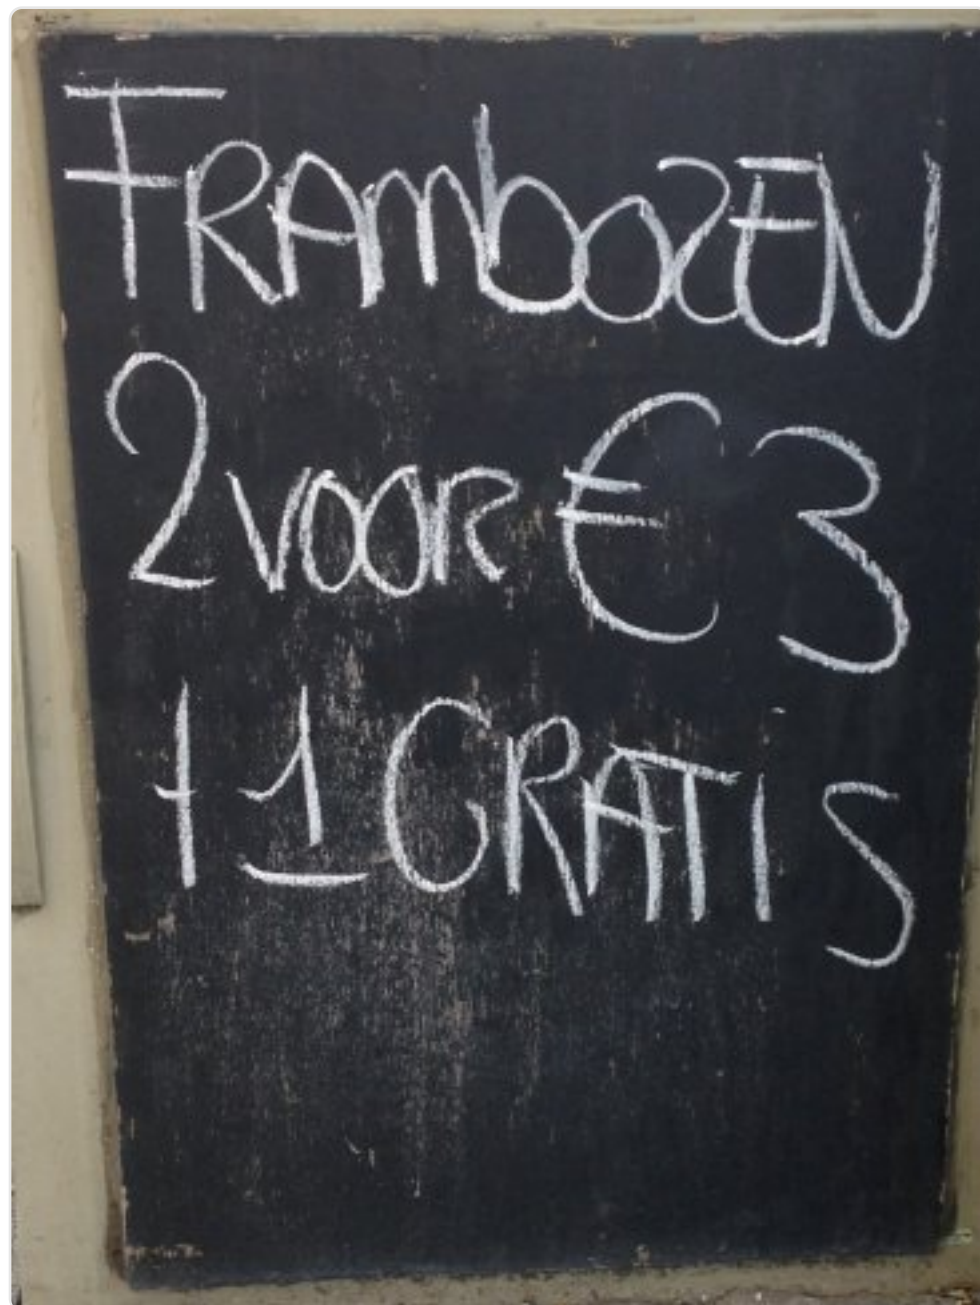 FRAMbOZEN
2 VOOR € 3
+ 1 GRATIS